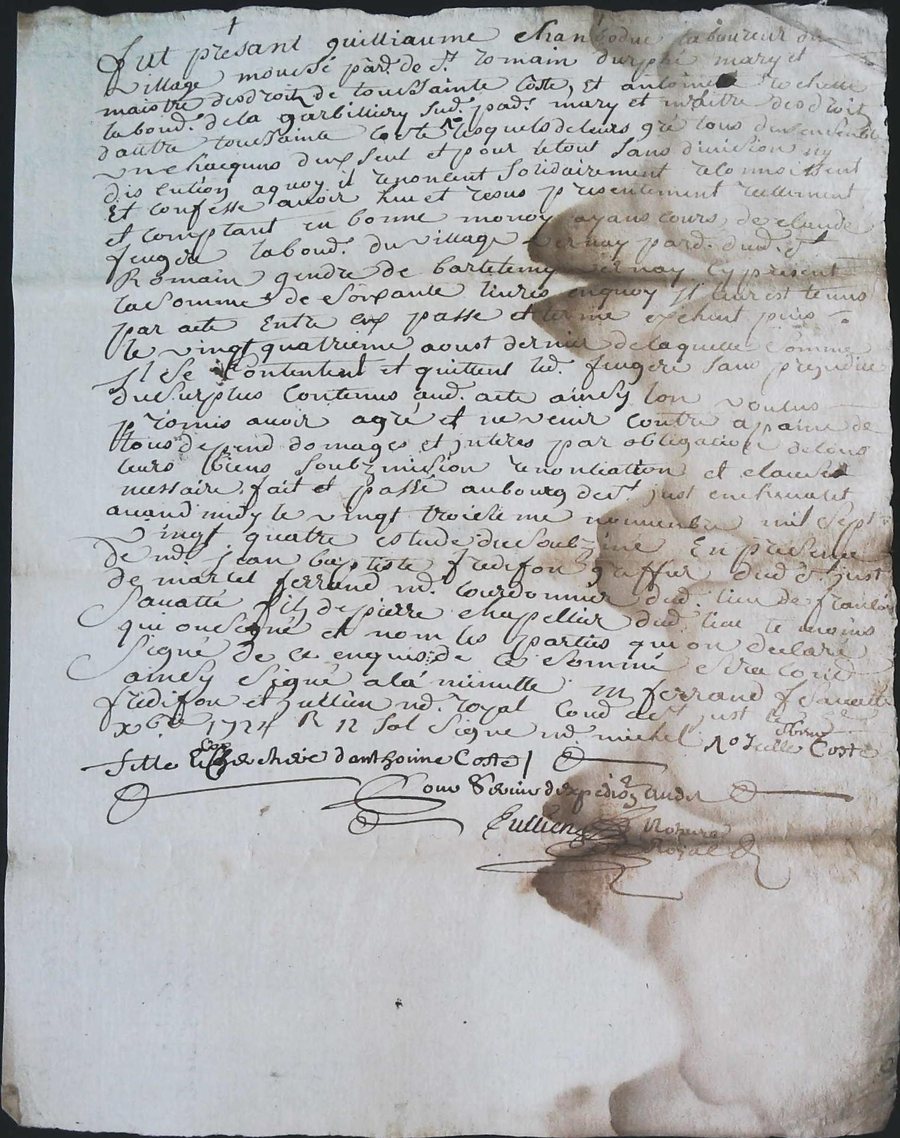 fut présant guilliaume chambodue laboureur du
village moussé par. de St. romain durphé mary et
maistre desdroit de toussainte coste, et antoine rochette
labourd. de la garbilliery sud. pard. mary et maitre desdroit
dautre toussainte coste lesquels de leurs gré tous deux ensemble
un chacguns deux seul et pour le tout sans division ny
discution aquoy il renoncent solidairement reconnoissent
Et confesse avoir heu et resus présentement reellement
et comptant en bonne monoy ayans cours, de claude
feugere labourd. du village vernay pard. dud. St.
Romain gendre de bartelemy vernay cy present
la somme de soixante livres enquoy il leur est tenus
par acte Entre eux passe et terme exchint puis
le vingt quatrieme aoust dernier de laquelle somme
Il se contentent et quittent led. feugere sans prejudice
du surplus contenus aud. acte ainsy lon voulus
promis avoir agré et ne venir contre a paine de
tous depend domages et jnteres par obligation de tous
leurs biens soubzmision renontiation et clauses
nessaire, fait et passé au bourg de St. just en chevalet
avand midy le vingt troisieme novembre mil sept
vingt quatre estude du soubzine En presence
de md. jean baptiste fredifon greffier dud. St. just
de marcel ferrand md. courdonnier dud. lieu de francois
Savatte fils de pierre chapellier dud. lieu temoins
qui on signé et nom les parties qui on declaré
signé de ce enquis: de la somme sera
ainsy signé ala minutte M ferrand f savatte
fredifon et jullien nd. royal Cond. a St just le
xbre 1724 R 12 sol signe nd michel
fille Et cher d'anthoinne Coste
Pour Servir d'expedion audit
Jullien Nottaire
Royal